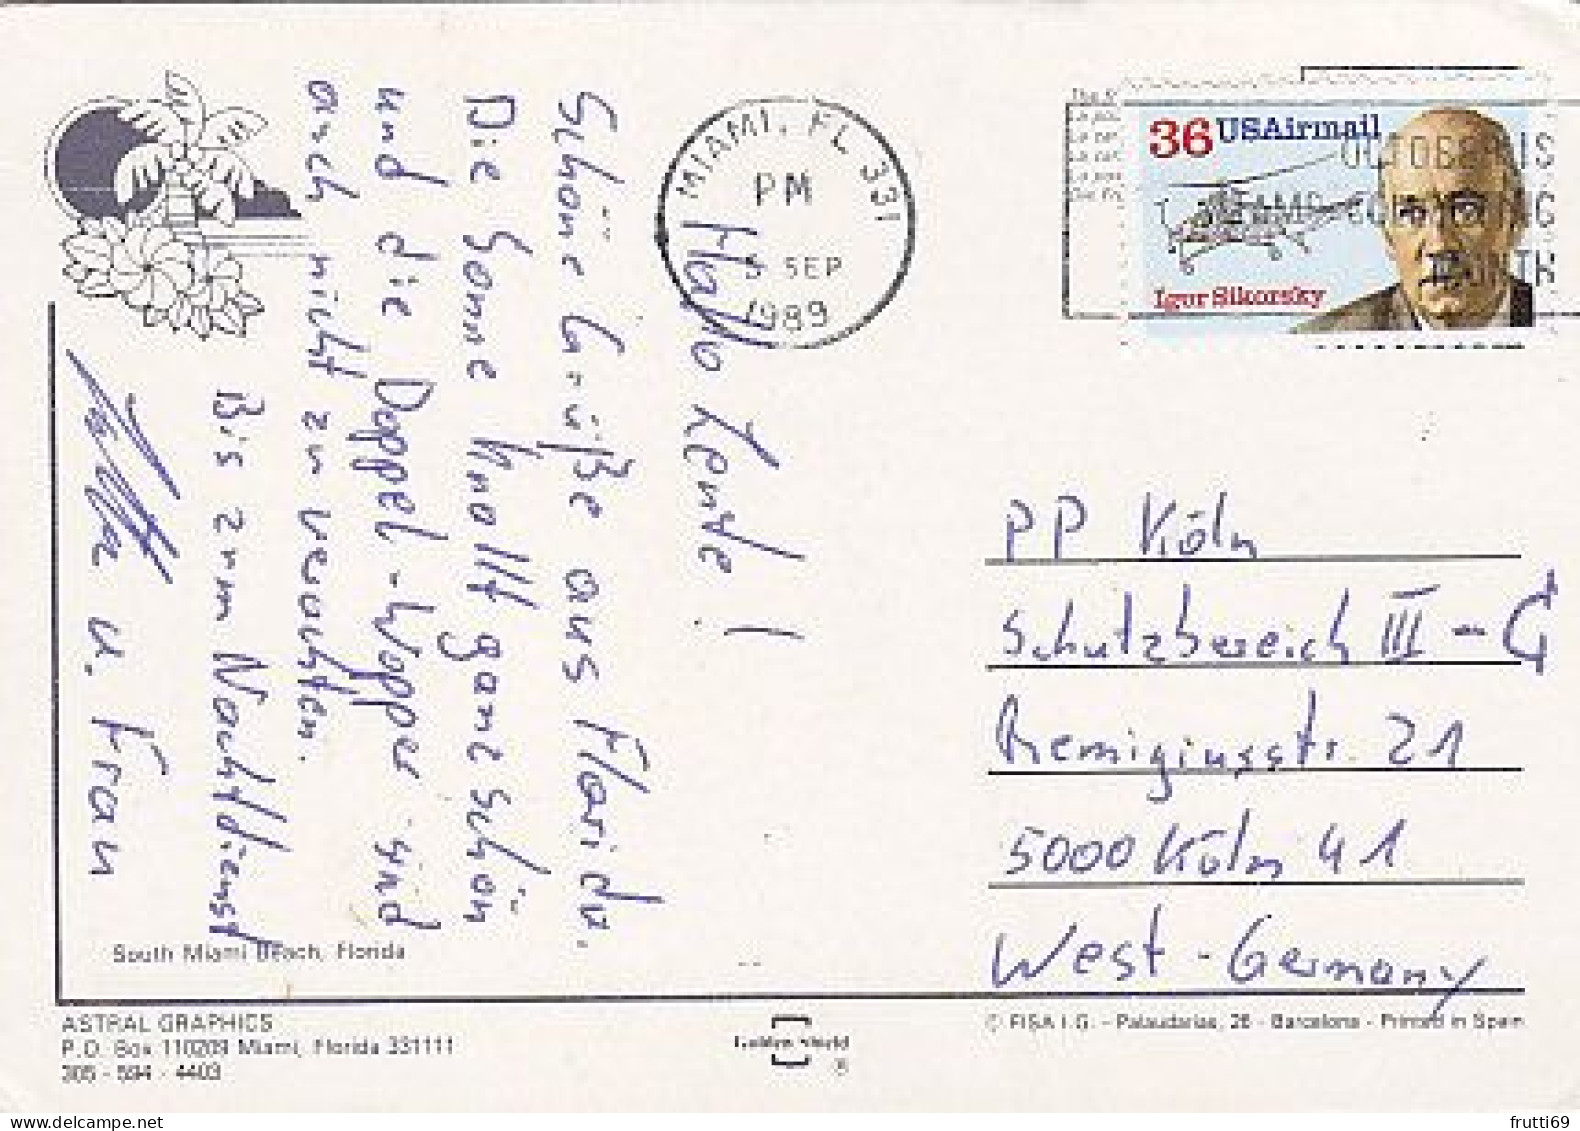 Hallo Leute!
Schöne Grüße aus Florida.
Die Sonne knallt ganz schön
und die Doppel-Wopper sind
auch nicht zu verachten.
Bis zum Nachtdienst
u. Frau
South Miami Beach, Florida
ASTRAL GRAPHICS
P.O. Box 110209 Miami, Florida 331111
305 - 594 - 4403
Golden Shield
®
MIAMI, FL 331
PM
SEP
1989
36 USAirmail
Igor Sikorsky
OCTOBER IS
STAMP COLLECTING
MONTH
PP Köln
Schutzbereich III - G
Remigiusstr. 21
5000 Köln 41
West-Germany
© FISA I.G. - Palaudarias, 26 - Barcelona - Printed in Spain
frutti69